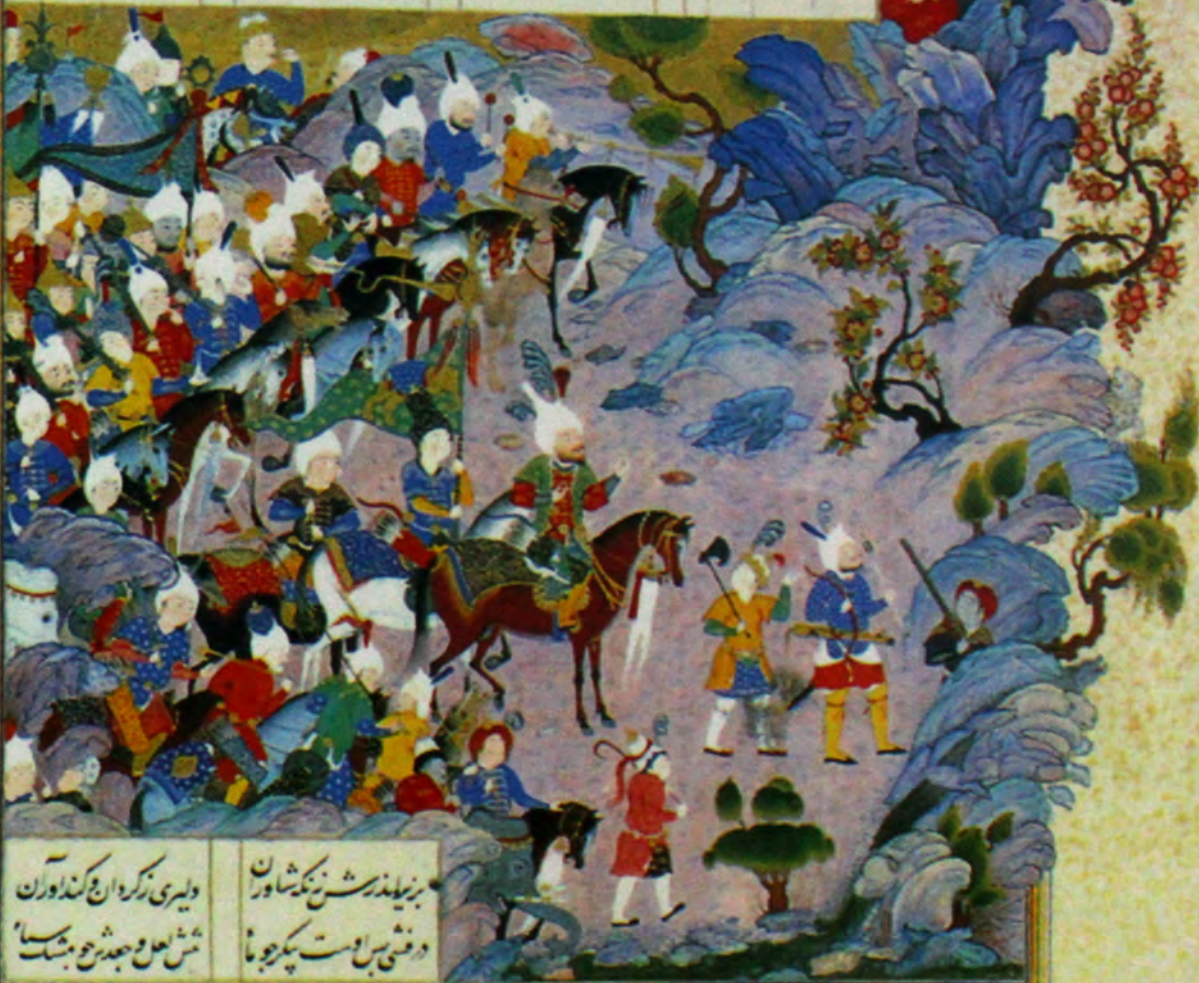 زنکه شاوران دلیری ز کردان و کنداوران
درفشی پس اوست پیکر چو ماه تنش لعل و جعدش چو مشک سیاه